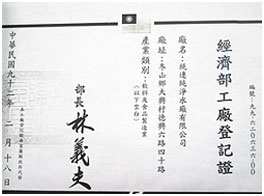 經濟部工廠登記證
編號:九九-六二〇六三六-〇〇
廠名:統達純淨水廠有限公司
廠址:冬山鄉大興村德興六路四十路
產業類別:飲料及食品製造業
(以下空白)
部長 林義夫
中華民國九十
年二月十八日